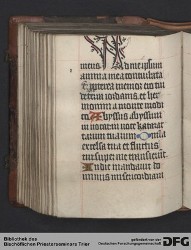 meus Ad me ipsum
anima mea conturbata
propterea memor ero tui
de terra iordanis et her
monim a monte modi
co Abyssus abyssum
in uocem
tuarum
excelsa tua et fluctus
tui super me transierunt
In die mandauit do
minus misericordiam
Bibliothek des
Bischöflichen Priesterseminars Trier
gefördert von der
Deutschen Forschungsgemeinschaft
DFG